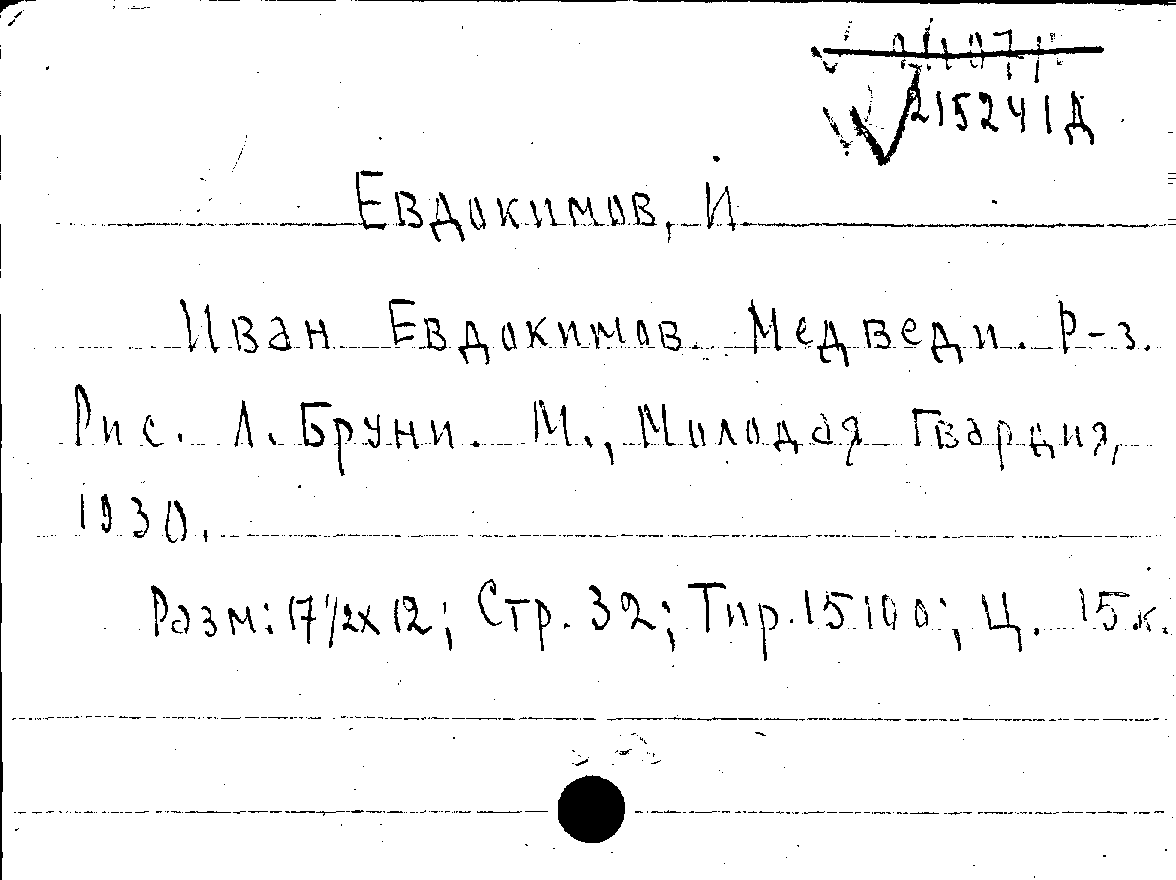 215241Д
Евдокимов, И.
Иван Евдокимов. Медведи. Р-з.
Рис. Л. Бруни. М., Молодая Гвардия,
1930.
Разм: 17 1/2 х 12; Стр. 32; Тир. 15100; Ц. 15 к.